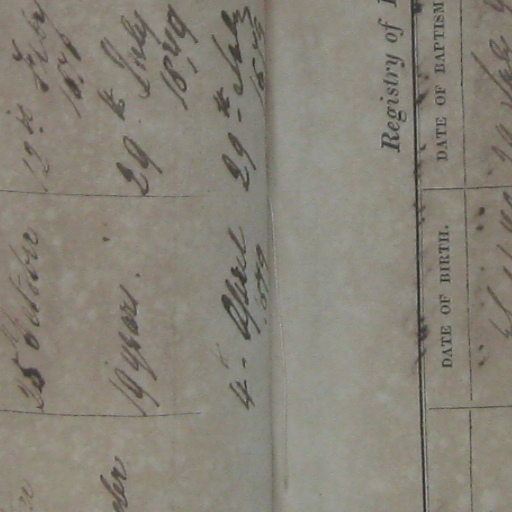 25 October 12th Feby
187
19 years. 29th July
1879
4th April 29th July
1879 1879
Registry of
DATE OF BIRTH. DATE OF BAPTISM
29 July